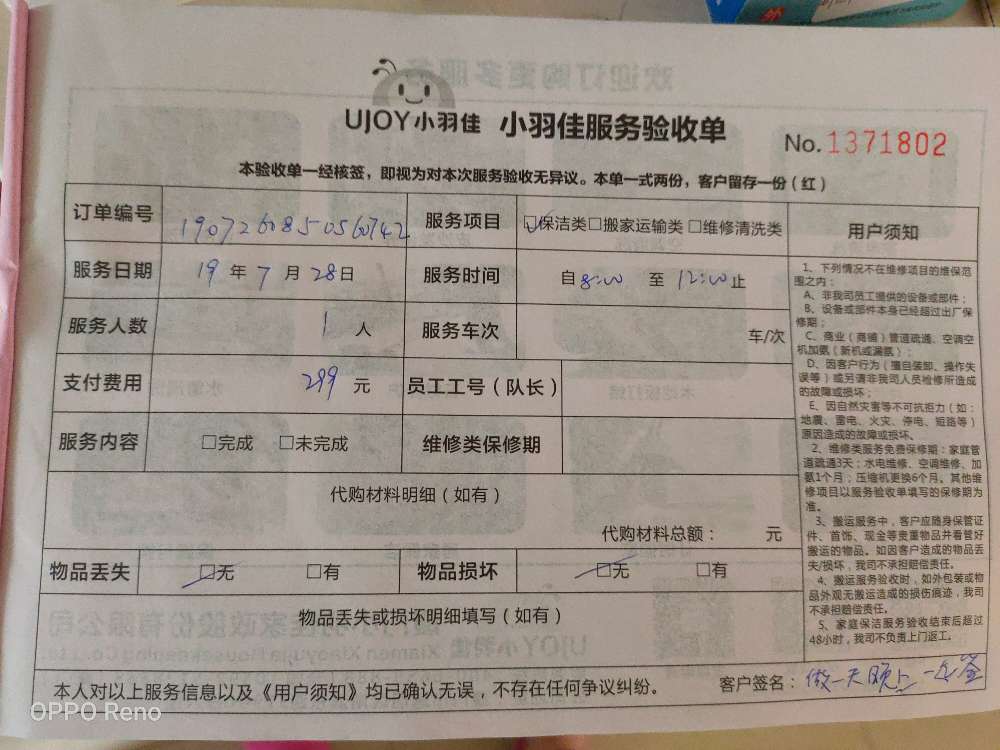 UJOY小羽佳 小羽佳服务验收单
No.1371802
本验收单一经核签，即视为对本次服务验收无异议。本单一式两份，客户留存一份（红）
订单编号 190726085056742 服务项目 ☑保洁类□搬家运输类□维修清洗类
服务日期 19年7月28日 服务时间 自8:00 至12:00止
服务人数 1人 服务车次 车/次
支付费用 299元 员工工号（队长）
服务内容 □完成 □未完成 维修类保修期
代购材料明细（如有）
代购材料总额： 元
物品丢失 ☑无 □有 物品损坏 ☑无 □有
物品丢失或损坏明细填写（如有）
本人对以上服务信息以及《用户须知》均已确认无误，不存在任何争议纠纷。 客户签名：做一天晚上一
用户须知
1、下列情况不在维修项目的维保范
围之内：
A、非我司员工提供的设备或部件；
B、设备或部件本身已经超过出厂保
修期；
C、商业（商铺）管道疏通、空调空
机加氨（新机或漏氨）；
D、因客户行为（擅自装卸、操作失
误等）或另请非我司人员检修所造成
的故障或损坏；
E、因自然灾害等不可抗拒力（如：
地震、雷电、火灾、停电、短路等）
原因造成的故障或损坏。
2、维修类服务免费保修期：家庭管
道疏通3天；水电维修、空调维修、加
氨1个月；压缩机更换6个月。其他维
修项目以服务验收单填写的保修期为
准。
3、搬运服务中，客户应随身保管证
件、首饰、现金等贵重物品并看管好
搬运的物品。如因客户造成的物品丢
失/损坏，我司不承担赔偿责任。
4、搬运服务验收时，如外包装或物
品外观无搬运造成的损伤痕迹，我司
不承担赔偿责任。
5、家庭保洁服务验收结束后超过
48小时，我司不负责上门返工。
OPPO Reno